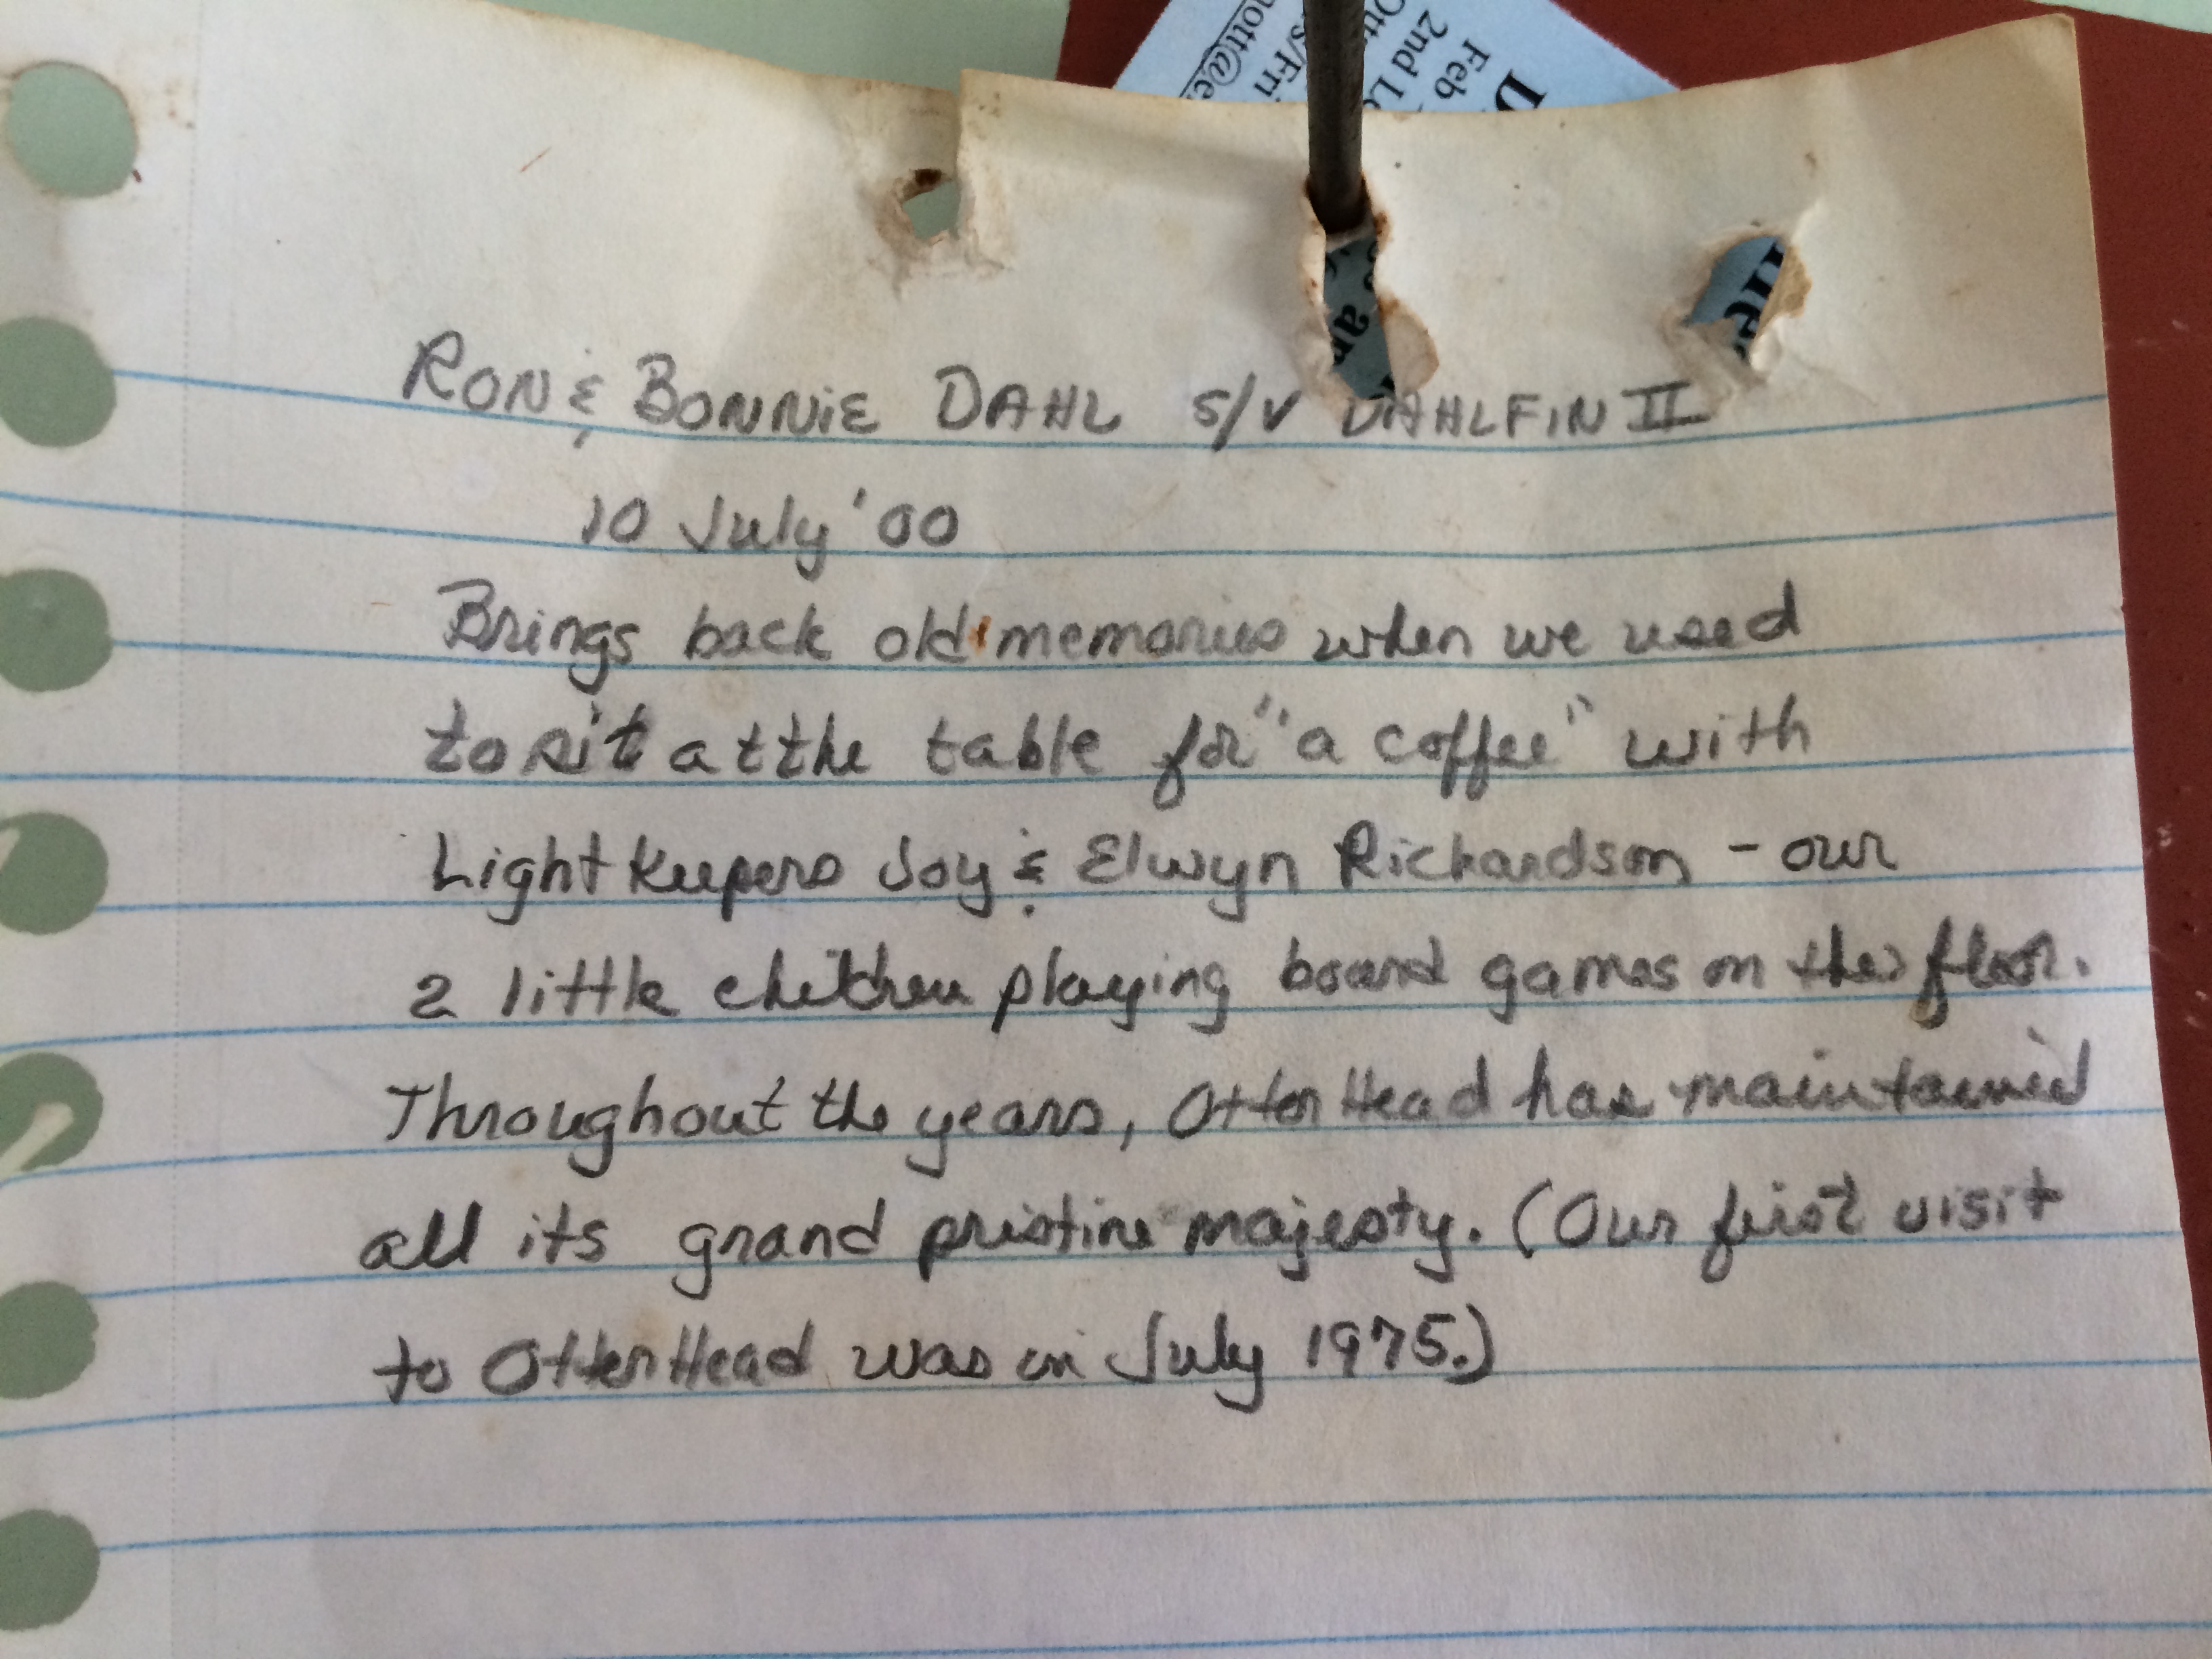 D
Feb
2nd L
Ott
s/Fri
nott@e
an
RON & BONNIE DAHL S/V DAHLFIN II
10 July '00
Brings back old memories when we used
to sit at the table for "a coffee" with
Light Keepers Joy & Elwyn Richardson - our
2 little children playing board games on the floor.
Throughout the years, Otter Head has maintained
all its grand pristine majesty. (Our first visit
to Otter Head was in July 1975.)